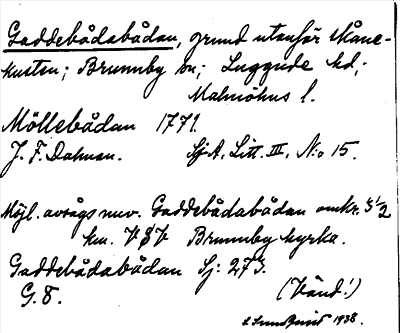 Gaddebådabådan, grund utanför skåne-
kusten; Brunnby sn; Luggude hd;
Malmöhus l.
Möllebådan 1771.
J. F. Dalman. Sj.A. Litt. III, N:o 15.
Möjl. avses nuv. Gaddebådabådan omkr. 3 1/2
km. V S V Brunnby kyrka.
Gaddebådabådan Sj: 273.
G. 8. (Vänd!)
S. Lundquist 1938.